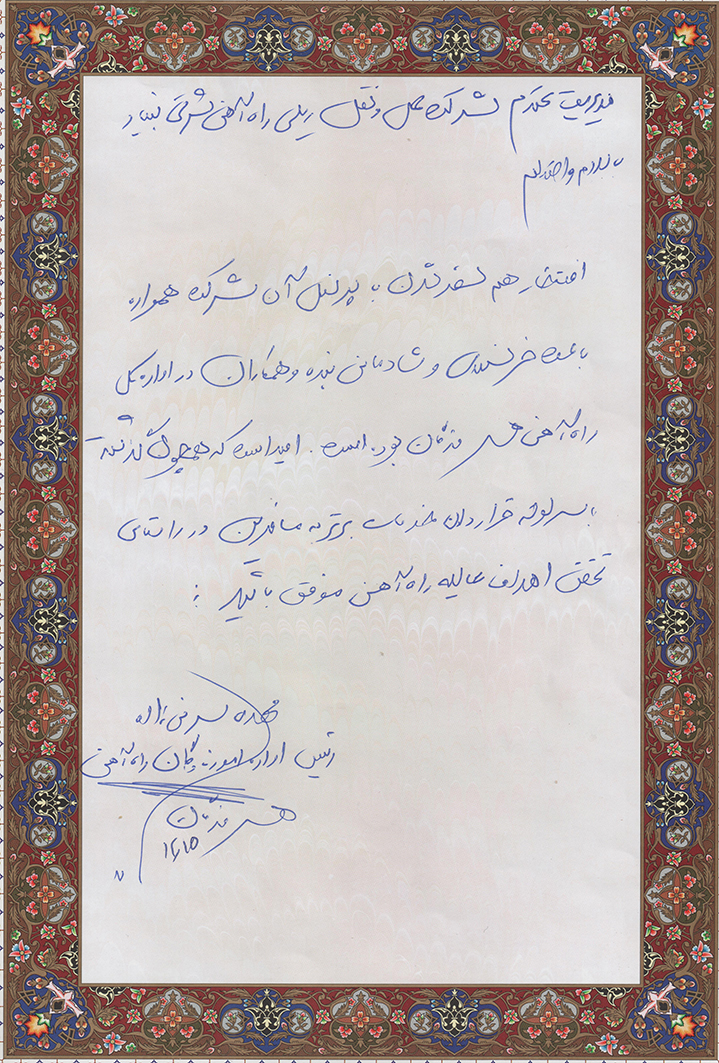 مدیریت محترم شرکت حمل و نقل ریلی راه آهن شرقی بنیاد
با سلام و احترام
افتخار هم سفر شدن با پرسنل آن شرکت همواره
باعث خرسندی و شادمانی بنده و همکاران در اداره کل
راه آهن هرمزگان بوده است. امید است که همچون گذشته
با سرلوحه قرار دادن خدمات برتر به مسافرین در راستای
تحقق اهداف عالیه راه آهن موفق باشید
رئیس اداره امور راه آهن
هرمزگان